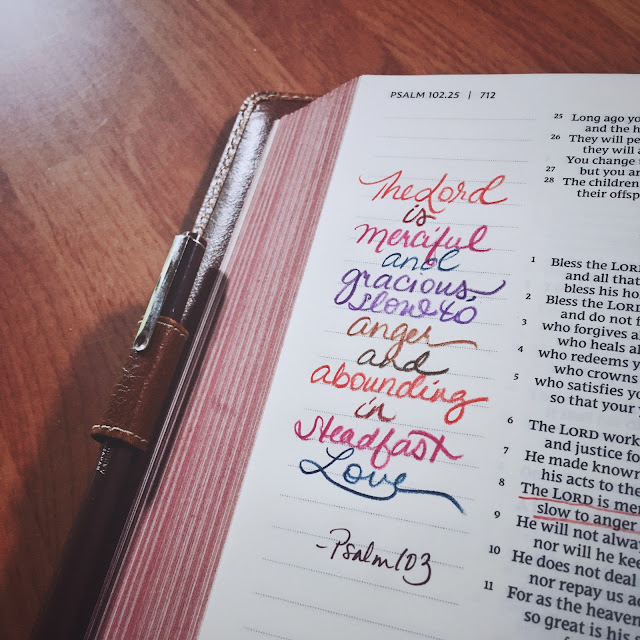 PSALM 102.25 | 712
The Lord
is
merciful
and
gracious,
slow to
anger
and
abounding
in
Steadfast
Love
-Psalm 103
25 Long ago yo
and the h
26 They will pe
they will a
You change
27 but you ar
28 The children
their offsp
1 Bless the LORD
and all tha
bless his ho
2 Bless the LORD
and do not f
3 who forgives al
who heals al
4 who redeems yo
who crowns
5 who satisfies yo
so that your
6 The LORD work
and justice fo
7 He made known
his acts to the
8 The LORD is mer
slow to anger
9 He will not alway
nor will he kee
10 He does not deal
nor repay us ac
11 For as the heaven
so great is hi